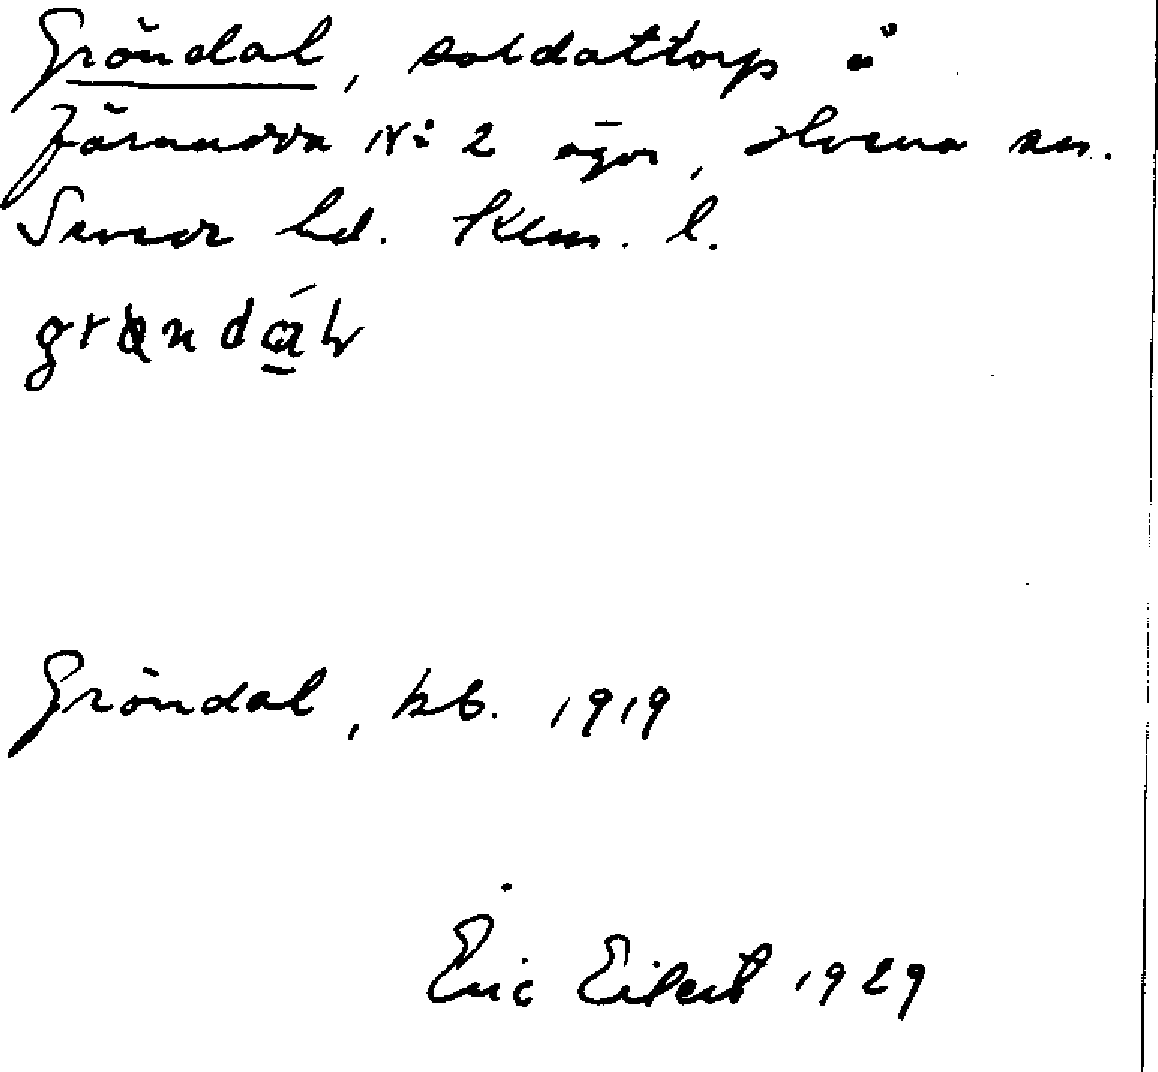 Gröndal, soldattorp å
Järnudda No 2 ägor, Hvena sn.
Sevede hd. Klm. l.
Gröndal, kb. 1919
Eric Eilert 1929